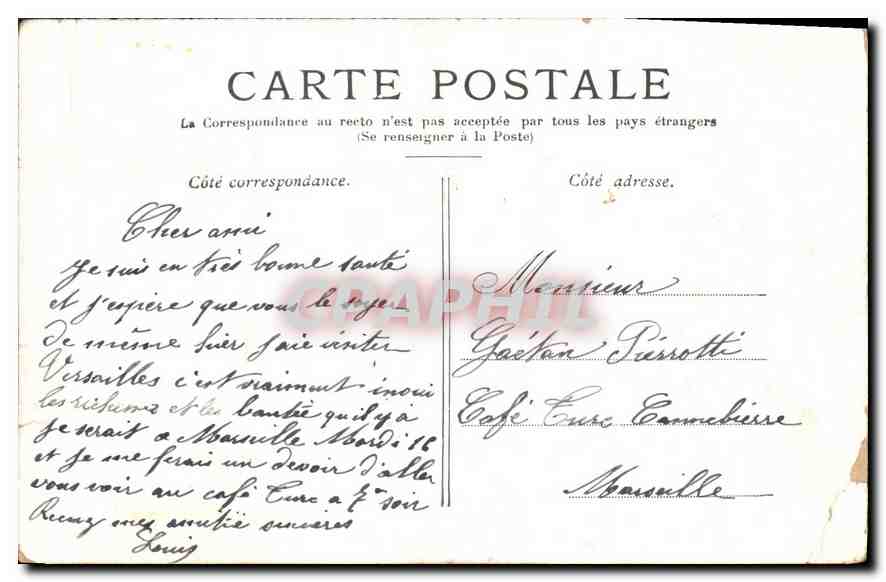 CARTE POSTALE
La Correspondance au recto n'est pas acceptée par tous les pays étrangers
(Se renseigner à la Poste)
Côté correspondance.
Cher ami
Je suis en très bonne santé
et j'espère que vous le soyer
de même hier jaie visiter
Versailles c'est vraiment inoui
les richesse et les bautée qu'il y à
Je serait a Marseille Mardi 16
et Je me ferais un devoir d'aller
vous voir au café Turc a 7h soir
Recevez mes amitié sincères
Louis
Côté adresse.
Monsieur
Gaëtan Pierrotti
Café Turc Cannebierre
Marseille
CPAPHIL